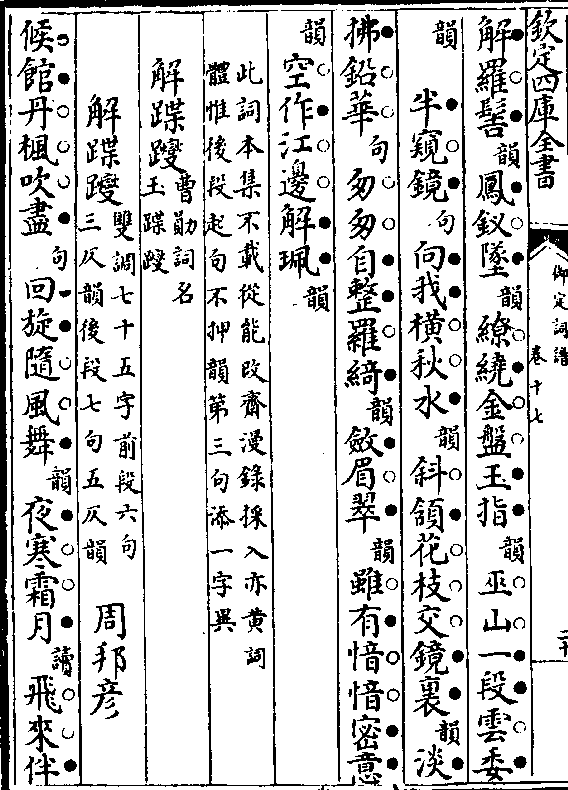 欽定四庫全書
御定詞譜
卷十七
二十
解羅髻韻鳳釵墜韻繚繞金盤玉指韻巫山一段雲委
韻半窺鏡句向我橫秋水韻斜頷花枝交鏡裏韻淡
拂鉛華句匆匆自整羅綺韻斂眉翠韻雖有愔愔密意
韻空作江邊解珮韻
此詞本集不載從能改齋漫錄採入亦黃詞
體惟後段起句不押韻第三句添一字異
解蹀躞曹勛詞名
玉蹀躞
解蹀躞雙調七十五字前段六句
三仄韻後段七句五仄韻 周邦彥
候館丹楓吹盡句回旋隨風舞韻夜寒霜月讀飛來伴